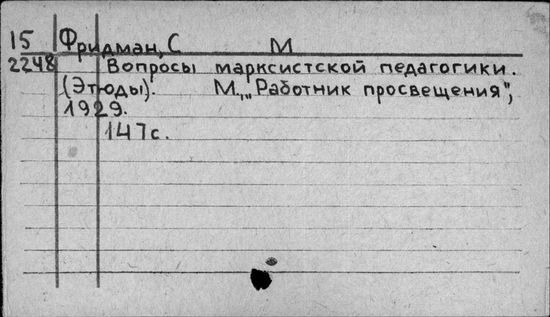 15 Фридман, С М
2248 Вопросы марксистской педагогики.
(Этюды). М., „Работник просвещения",
1929.
147с.